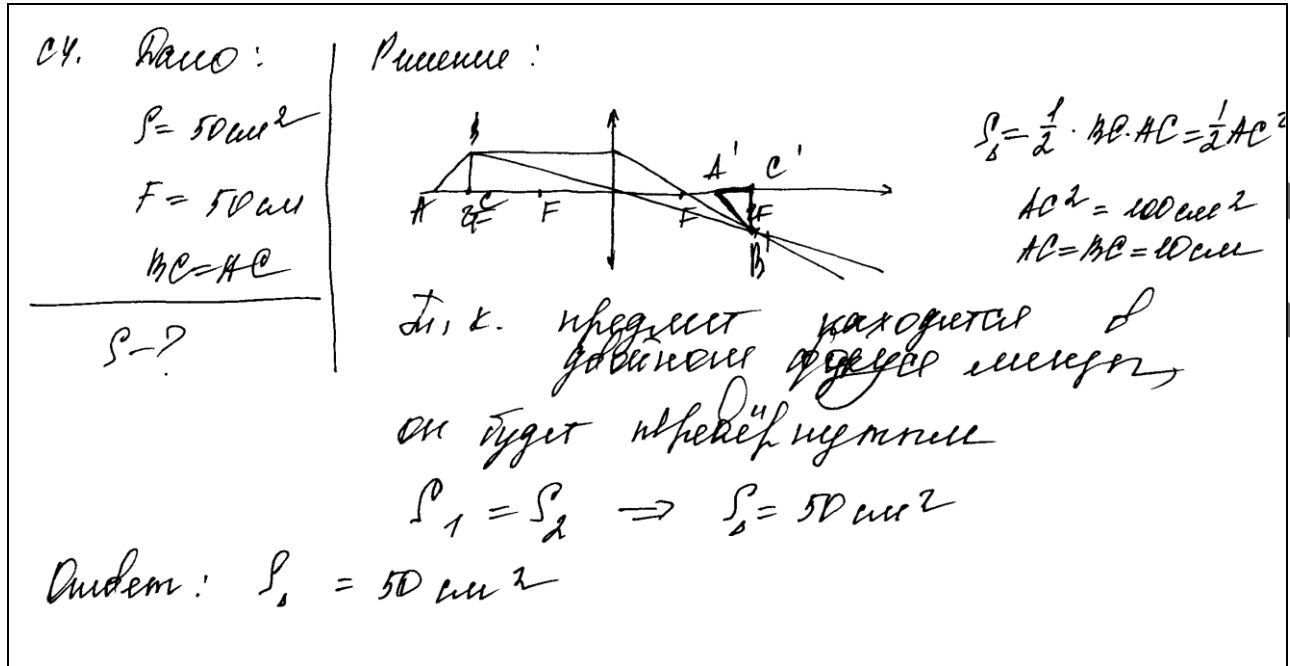 С4. Дано:
S = 50 см²
F = 50 см
BC = AC
S - ?
Решение:
B
A
C
2F
F
F
A'
C'
2F
B'
S△ = 1/2 · BC · AC = 1/2 AC²
AC² = 100 см²
AC = BC = 10 см
Т. к. предмет находится в
двойном фокусе линзы,
он будет перевёрнутым
S₁ = S₂ ⇒ S△ = 50 см²
Ответ: S△ = 50 см²